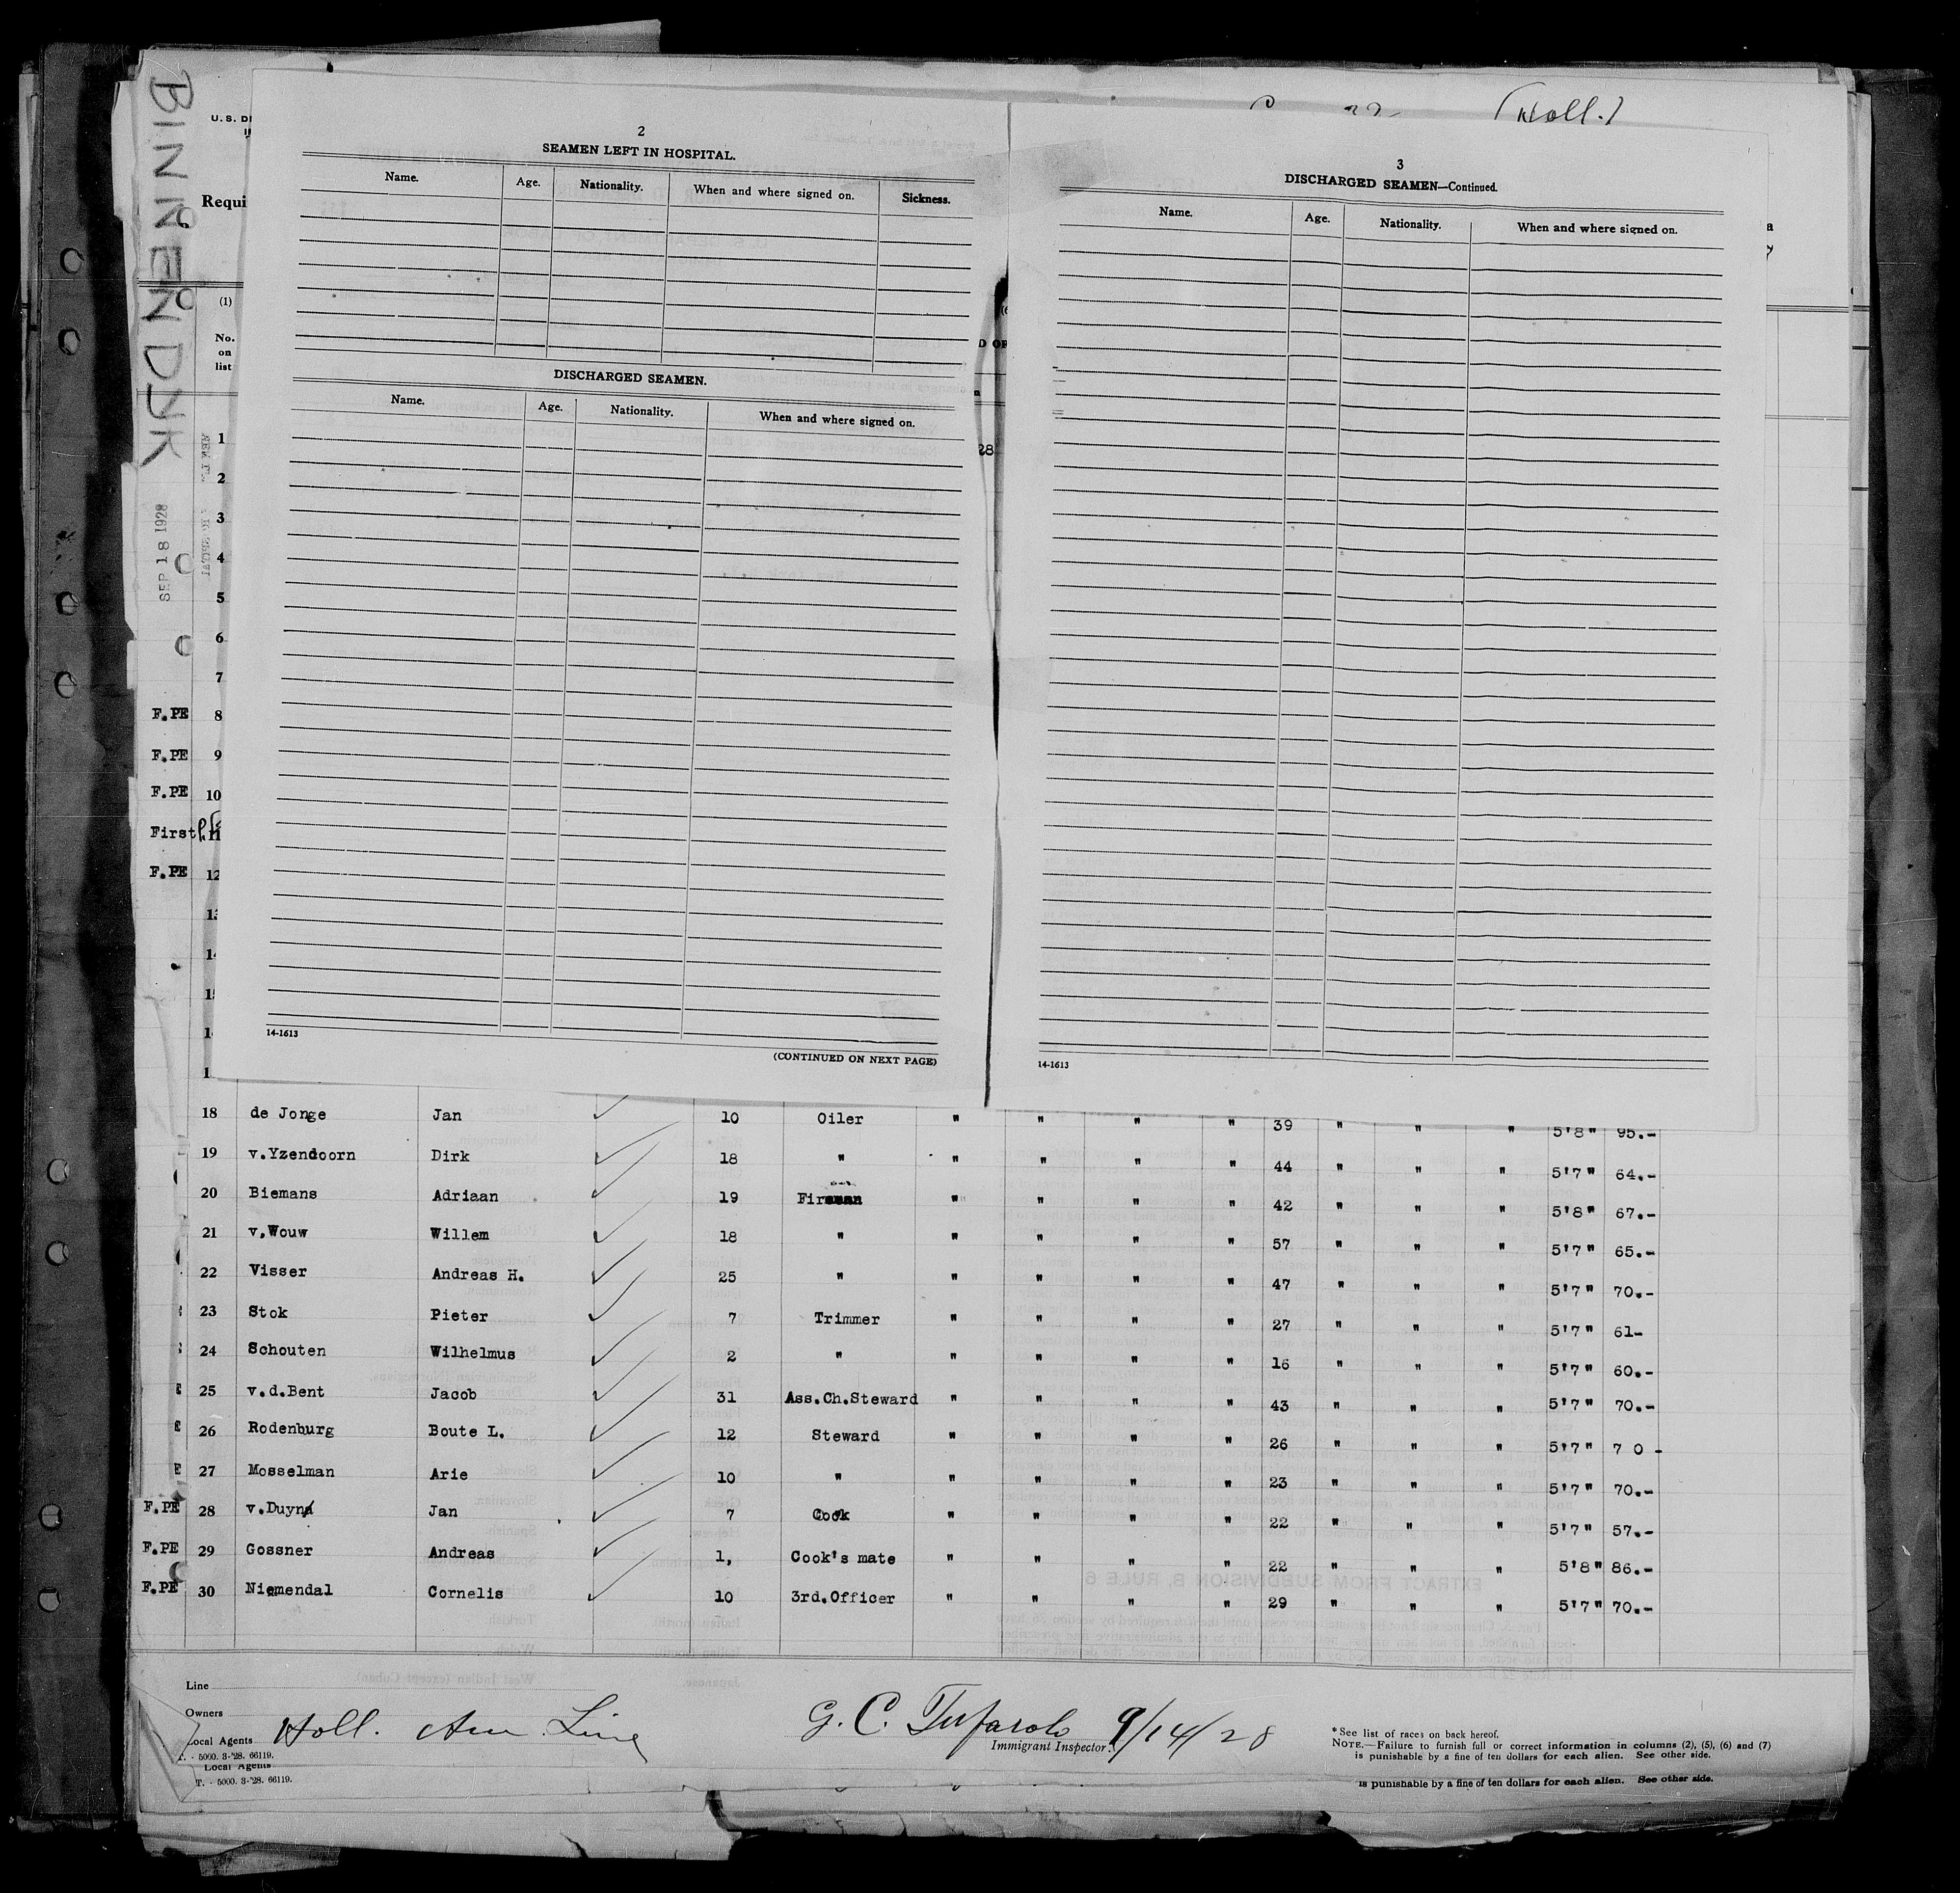 BINNENDYK
SEP 18 1928
(Holl.)
U.S. DE
Requi
(1)
No.
on
list
1
2
3
4
5
6
7
F.PE 8
F.PE 9
F.PE 10
First 11
F.PE 12
28
2
SEAMEN LEFT IN HOSPITAL.
Name. Age. Nationality. When and where signed on. Sickness.
DISCHARGED SEAMEN.
Name. Age. Nationality. When and where signed on.
14-1613
(CONTINUED ON NEXT PAGE)
3
DISCHARGED SEAMEN—Continued.
Name. Age. Nationality. When and where signed on.
14-1613
18 de Jonge Jan 10 Oiler " " " " 39 " " " 5'8" 95.-
19 v.Yzendoorn Dirk 18 " " " " " 44 " " " 5'7" 64.-
20 Biemans Adriaan 19 Fireman " " " " 42 " " " 5'8" 67.-
21 v.Wouw Willem 18 " " " " " 57 " " " 5'7" 65.-
22 Visser Andreas H. 25 " " " " " 47 " " " 5'7" 70.-
23 Stok Pieter 7 Trimmer " " " " 27 " " " 5'7" 61-
24 Schouten Wilhelmus 2 " " " " " 16 " " " 5'7" 60.-
25 v.d.Bent Jacob 31 Ass.Ch.Steward " " " " 43 " " " 5'7" 70.-
26 Rodenburg Boute L. 12 Steward " " " " 26 " " " 5'7" 7 0 -
27 Mosselman Arie 10 " " " " " 23 " " " 5'7" 70.-
F.PE 28 v.Duyn Jan 7 Cook " " " " 22 " " " 5'7" 57.-
F.PE 29 Gossner Andreas 1, Cook's mate " " " " 22 " " " 5'8" 86.-
F.PE 30 Niemendal Cornelis 10 3rd.Officer " " " " 29 " " " 5'7" 70.-
Line
Owners
Local Agents Holl. Am Line
T. - 5000. 3-'28. 66119.
Local Agents
T. - 5000. 3-'28. 66119.
G. C. Tufarolo 9/14/28
Immigrant Inspector.
*See list of races on back hereof.
NOTE.—Failure to furnish full or correct information in columns (2), (5), (6) and (7)
is punishable by a fine of ten dollars for each alien. See other side.
is punishable by a fine of ten dollars for each alien. See other side.